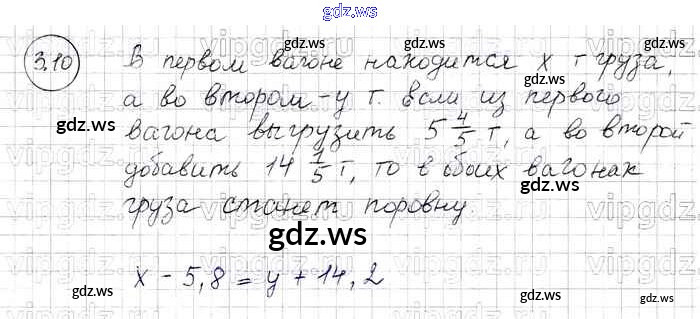 gdz.ws
3.10 В первом вагоне находится x т груза,
а во втором – y т. Если из первого
вагона выгрузить 5 4/5 т, а во второй
добавить 14 1/5 т, то в обоих вагонах
груза станет поровну.
x - 5,8 = y + 14,2
gdz.ws
gdz.ws
gdz.ws
gdz.ws
gdz.ws
gdz.ws
gdz.ws
gdz.ws
gdz.ws